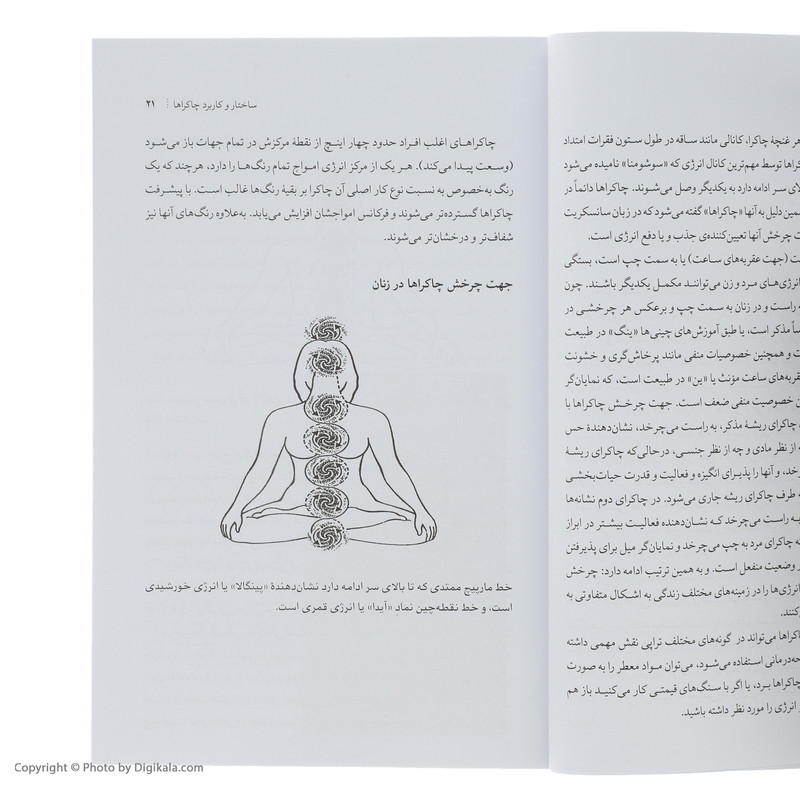 ساختار و کاربرد چاکراها ۲۱
چاکراهـای اغلب افراد حدود چهار اینـچ از نقطهٔ مرکزش در تمام جهات باز می‌شود
(وسعت پیدا می‌کند). هـر یک از مرکز انرژی امواج تمام رنگ‌هـا را دارد، هرچند که یک
رنگ به‌خصوص به نسبت نوع کار اصلی آن چاکرا بر بقیهٔ رنگ‌ها غالب است. با پیشرفت
چاکراها گسترده‌تر می‌شوند و فرکانس امواجشان افزایش می‌یابد. به‌علاوه رنگ‌های آنها نیز
شفاف‌تر و درخشان‌تر می‌شوند.
جهت چرخش چاکراها در زنان
خط مارپیچ ممتدی که تا بالای سر ادامه دارد نشان‌دهندهٔ «پینگالا» یا انرژی خورشیدی
است، و خط نقطه‌چین نمادِ «آیدا» یا انرژی قمری است.
هر غنچهٔ چاکرا، کانالی مانند ساقه در طول ستون فقرات امتداد
توسط مهم‌ترین کانال انرژی که «سوشومنا» نامیده می‌شود
سـر ادامه دارد به یکدیگر وصل می‌شـوند. چاکراها دائماً در
دلیل به آنها «چاکراها» گفته می‌شود که در زبان سانسکریت
چرخش آنها تعیین‌کننده‌ی جذب و یا دفع انرژی است.
(جهت عقربه‌های ساعت) یا به سمت چپ است، بستگی
انرژی‌های مرد و زن می‌تواننـد مکمل یکدیگر باشند. چون
راست و در زنان به سمت چپ و برعکس هر چرخشی در
مذکر است، یا طبق آموزش‌های چینی‌ها «ینگ» در طبیعت
و همچنین خصوصیات منفی مانند پرخاش‌گری و خشونت
عقربه‌های ساعت مؤنث یا «ین» در طبیعت است، که نمایان‌گر
خصوصیت منفی ضعف است. جهت چرخـش چاکراها با
چاکرای ریشهٔ مذکر، به راست می‌چرخد، نشان‌دهندهٔ حس
از نظر مادی و چه از نظر جنسی، درحالی‌که چاکرای ریشهٔ
و آنها را پذیـرای انگیزه و فعالیت و قدرت حیات‌بخشی
طرف چاکرای ریشه جاری می‌شود. در چاکرای دوم نشانه‌ها
به راست می‌چرخد که نشان‌دهنده فعالیت بیشتر در ابراز
چاکرای مرد به چپ می‌چرخد و نمایان‌گر میل برای پذیرفتن
وضعیت منفعل است. و به همین ترتیب ادامه دارد: چرخش
انرژی‌ها را در زمینه‌های مختلف زندگی به اشکال متفاوتی به
می‌تواند در گونه‌های مختلف تراپی نقش مهمی داشته
استفاده می‌شود، می‌توان مواد معطر را به صورت
چاکراها بـرد، یا اگر با سنگ‌های قیمتـی کار می‌کنیـد باز هم
انرژی را مورد نظر داشته باشید.
Copyright © Photo by Digikala.com